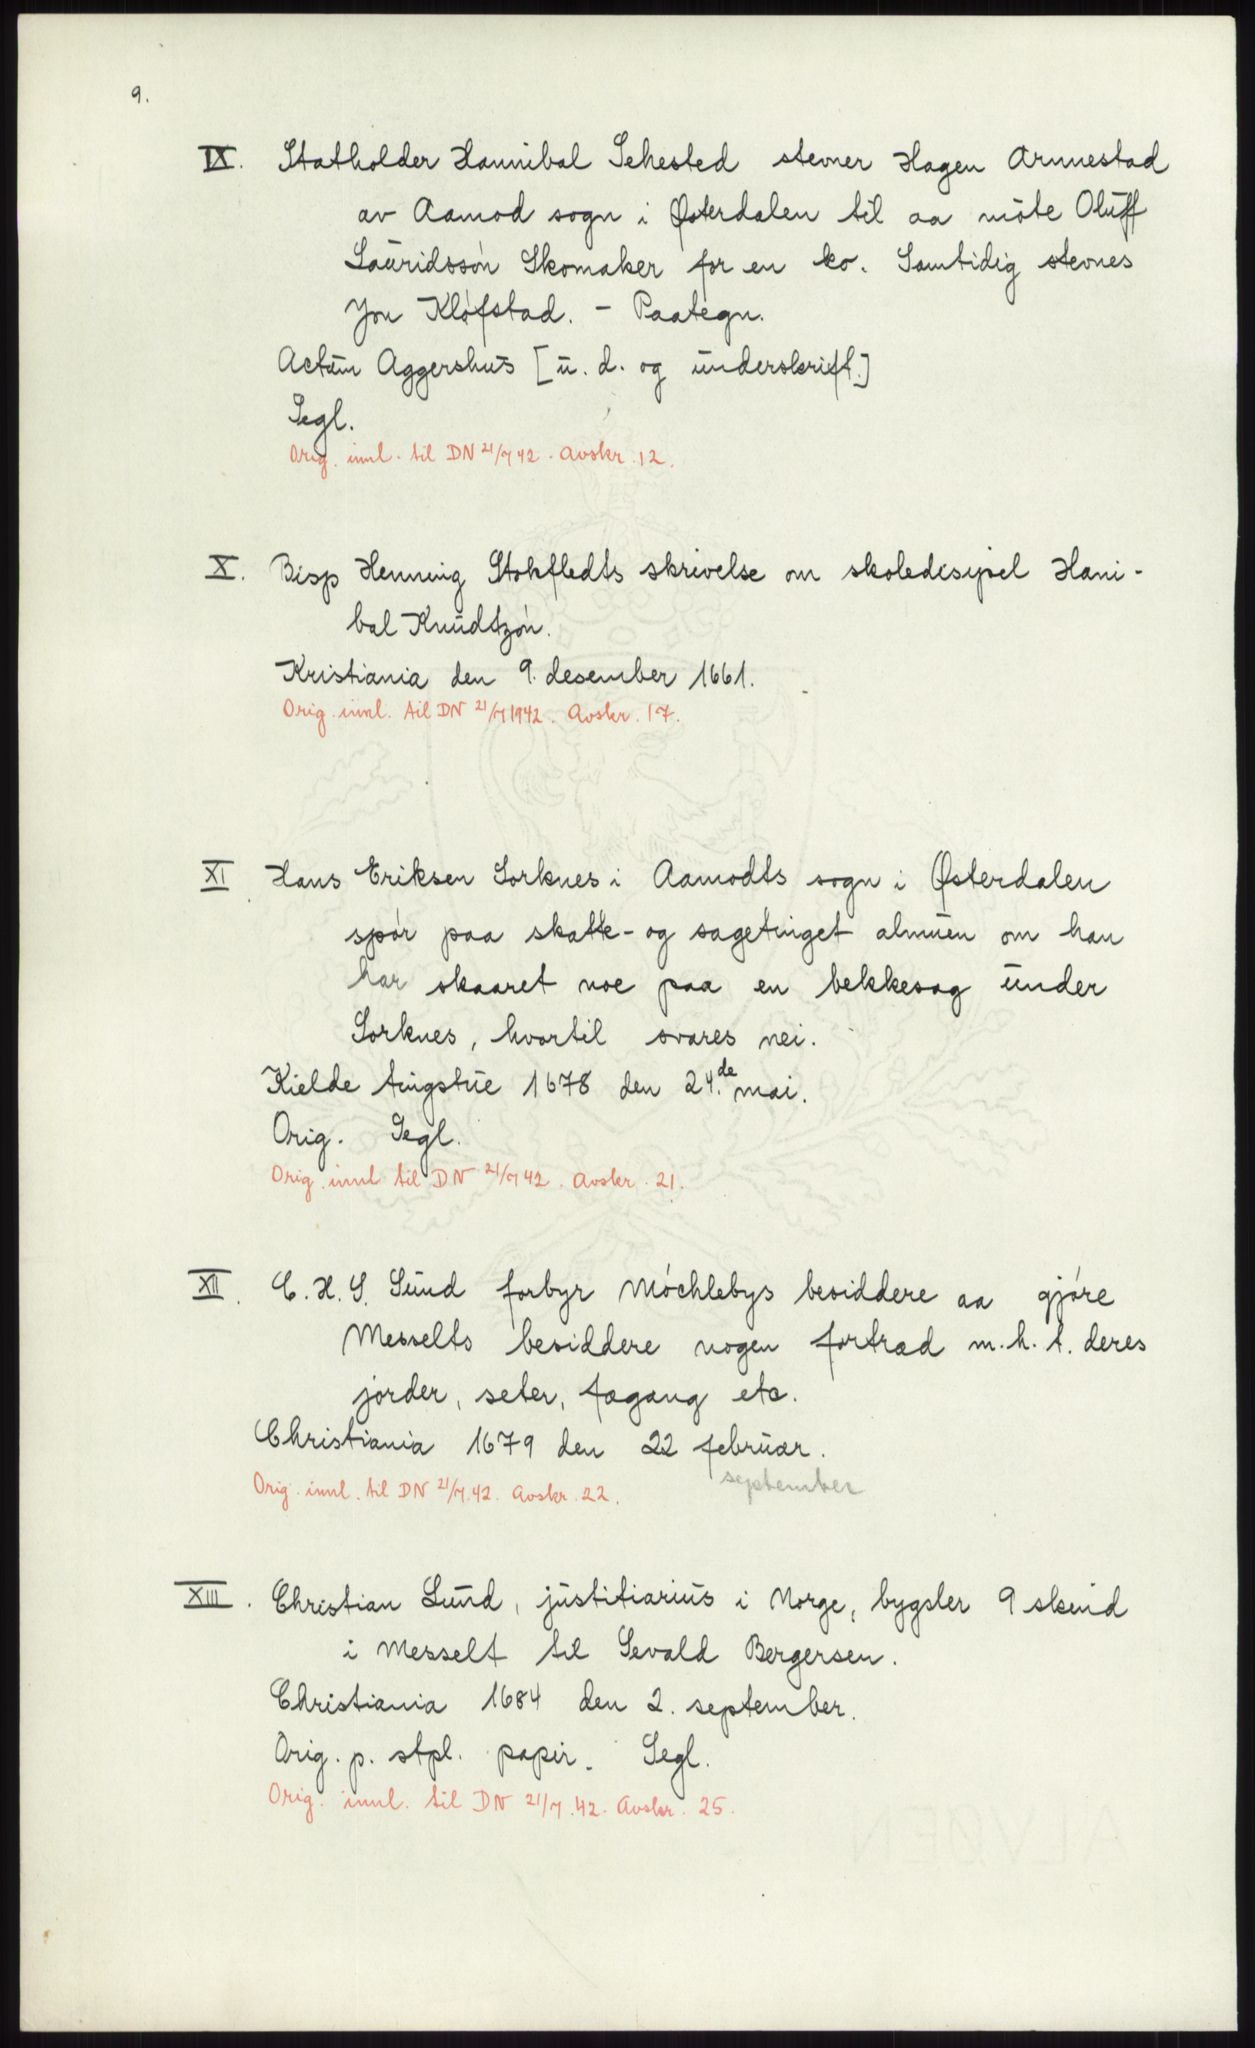 9.
IX. Statholder Hannibal Sehested stevner Hagen Arnnestad
av Aamod sogn i Østerdalen til aa møte Oluff
Lauridssøn Skomaker for en ko. Samtidig stevnes
Jon Kløfstad. - Paategn.
Actum Aggershus [u. d. og underskrift.]
Segl.
Orig. innl. til DN 21/7 42. Avskr. 12.
X. Bisp Henning Stokfledts skrivelse om skoledisipel Hani-
bal Knudtzøn.
Kristiania den 9. desember 1661.
Orig. innl. til DN 21/7 1942. Avskr. 17.
XI Hans Eriksen Sorknes i Aamodts sogn i Østerdalen
spør paa skatte- og sagetinget almuen om han
har skaaret noe paa en bekkesag under
Sorknes, hvortil svares nei.
Kielde tingstue 1678 den 24.de mai.
Orig. Segl.
Orig. innl til DN 21/7 42. Avskr. 21.
XII. C. H. S. Lund forbyr Møchlebys besiddere aa gjøre
Messelts besiddere nogen fortræd m. h. t. deres
jorder, seter, fægang etc.
Christiania 1679 den 22 februar.
september
Orig. innl. til DN 21/7. 42. Avskr. 22.
XIII. Christian Lund, justitiarius i Norge, bygsler 9 skind
i Messelt til Sevald Bergersen.
Christiania 1684 den 2. september.
Orig. p. stpl. papir. Segl.
Orig. innl. til DN 21/7. 42. Avskr. 25.
ALVØEN